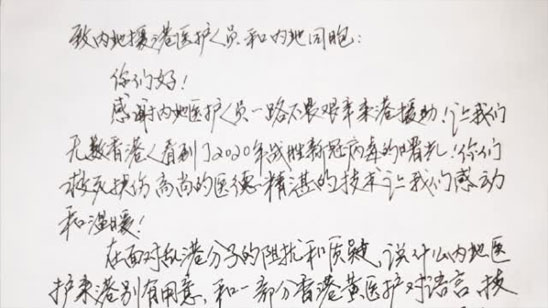 致内地援港医护人员和内地同胞：
你们好！
感谢内地医护人员一路不畏艰辛来港援助！让我们
无数香港人看到了2020年战胜新冠病毒的曙光！你们
救死扶伤高尚的医德精湛的技术让我们感动
和温暖！
在面对乱港分子的阻扰和质疑，说什么内地医
护来港别有用意，和一部分香港黄医护对语言、技